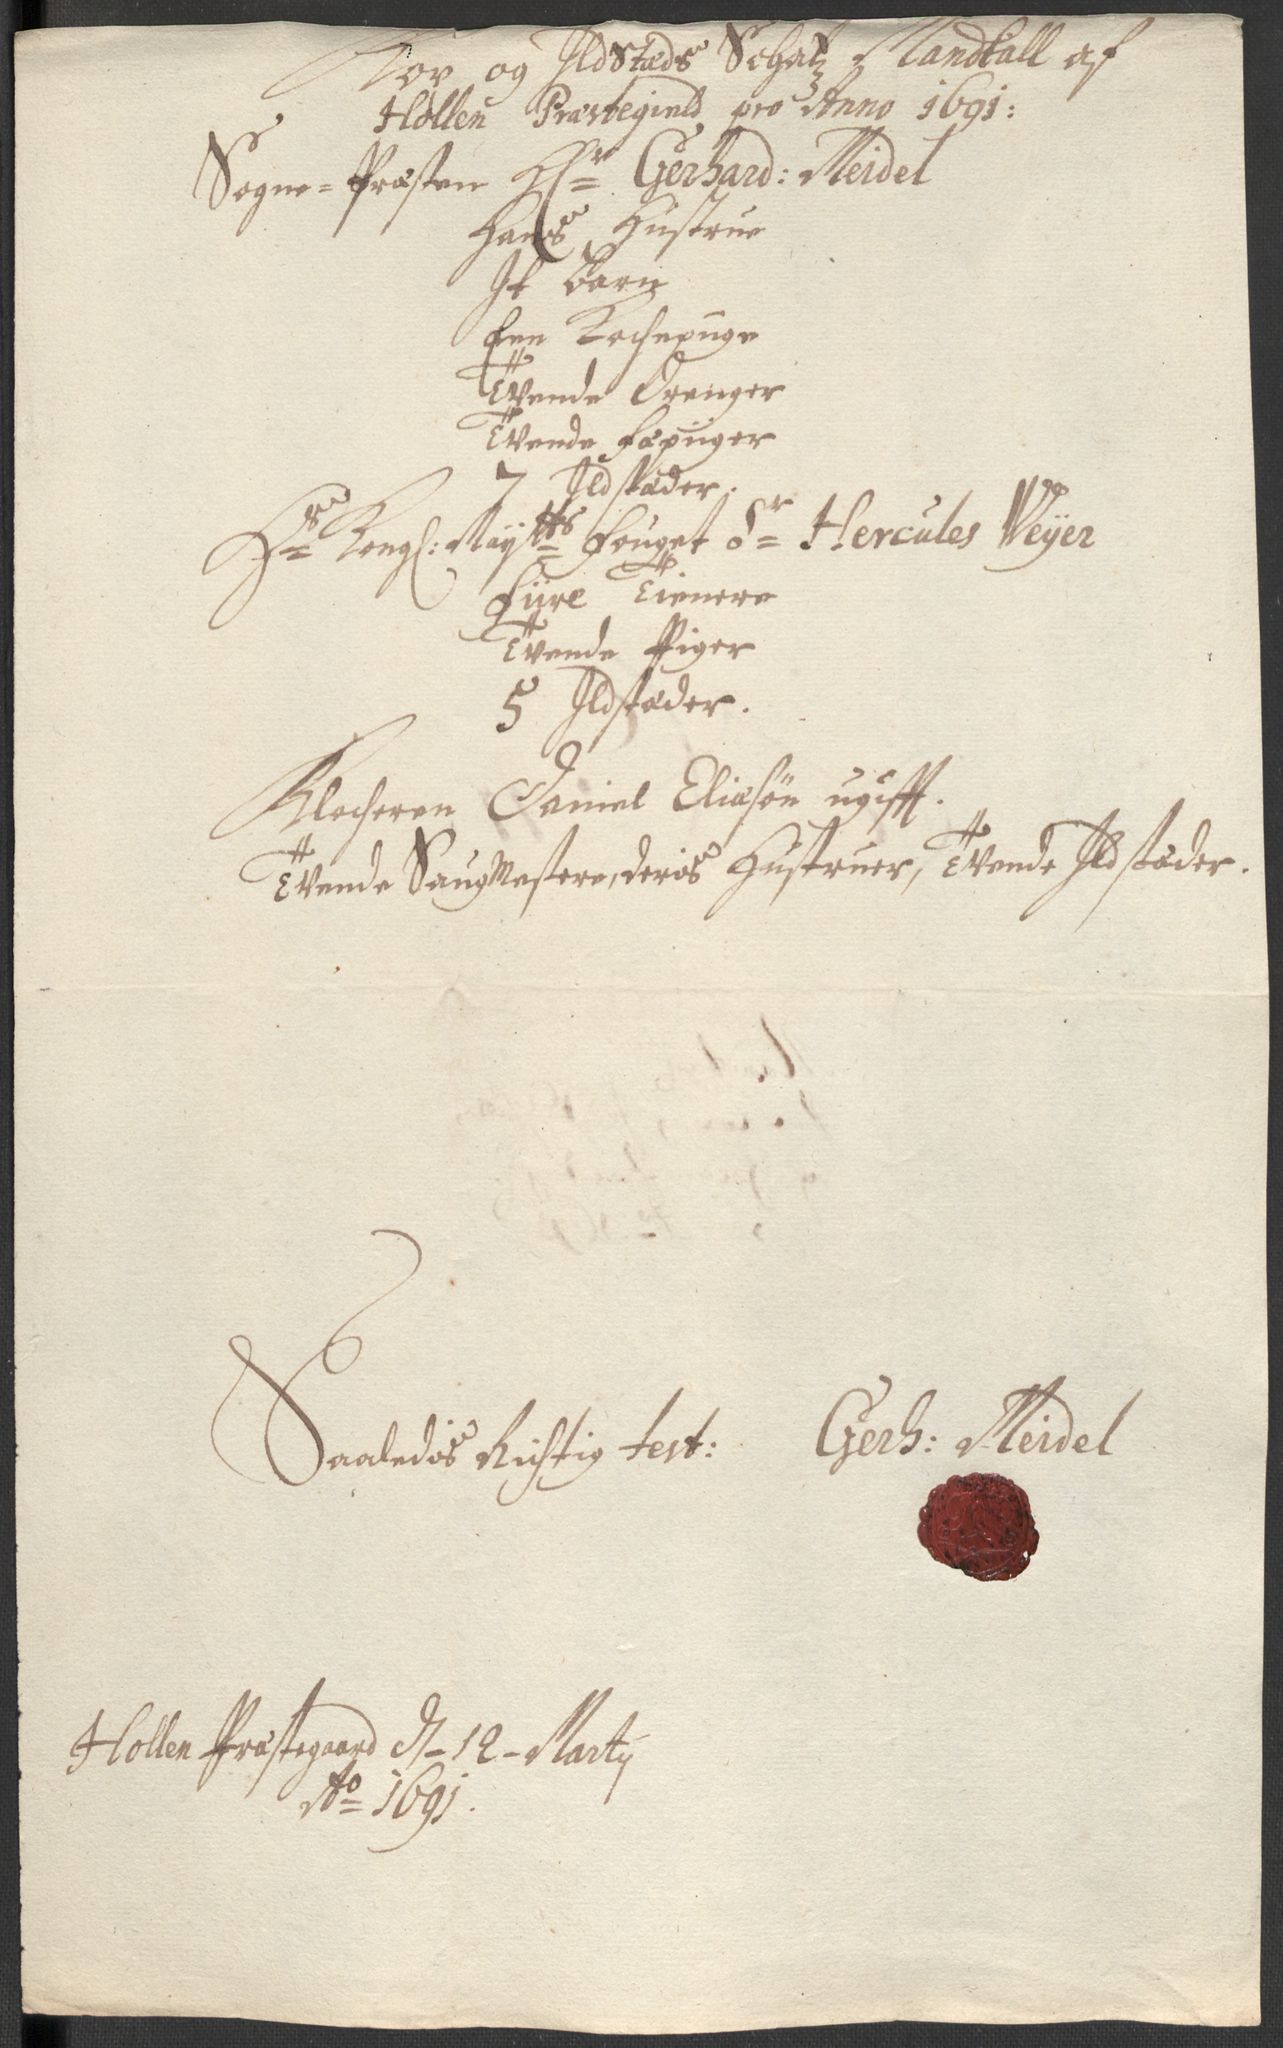 Kop og Ildstæds Schatz Mandtall af
Hollen Præstegield pro Anno 1691:
Sogne-Præsten Hr Gerhard: Meidel
Hans Hustrue
It barn
Een Kochepuge
Tvende Drenger
Tvende Fæpiiger
7 Ildstæder.
Hr Kongl: Maytts Fouget Sr Hercules Weyer
Fiire Tienere
Tvende Piger
5 Ildstæder.
Klocheren Daniel Eliæsøn ugifft.
Tvende SaugMestere, deris Hustruer, Tvende Ildstæder.
Saaledis Richtig test: Gerh: Meidel
Hollen Præstegaard d 12 Martij
Ao 1691.